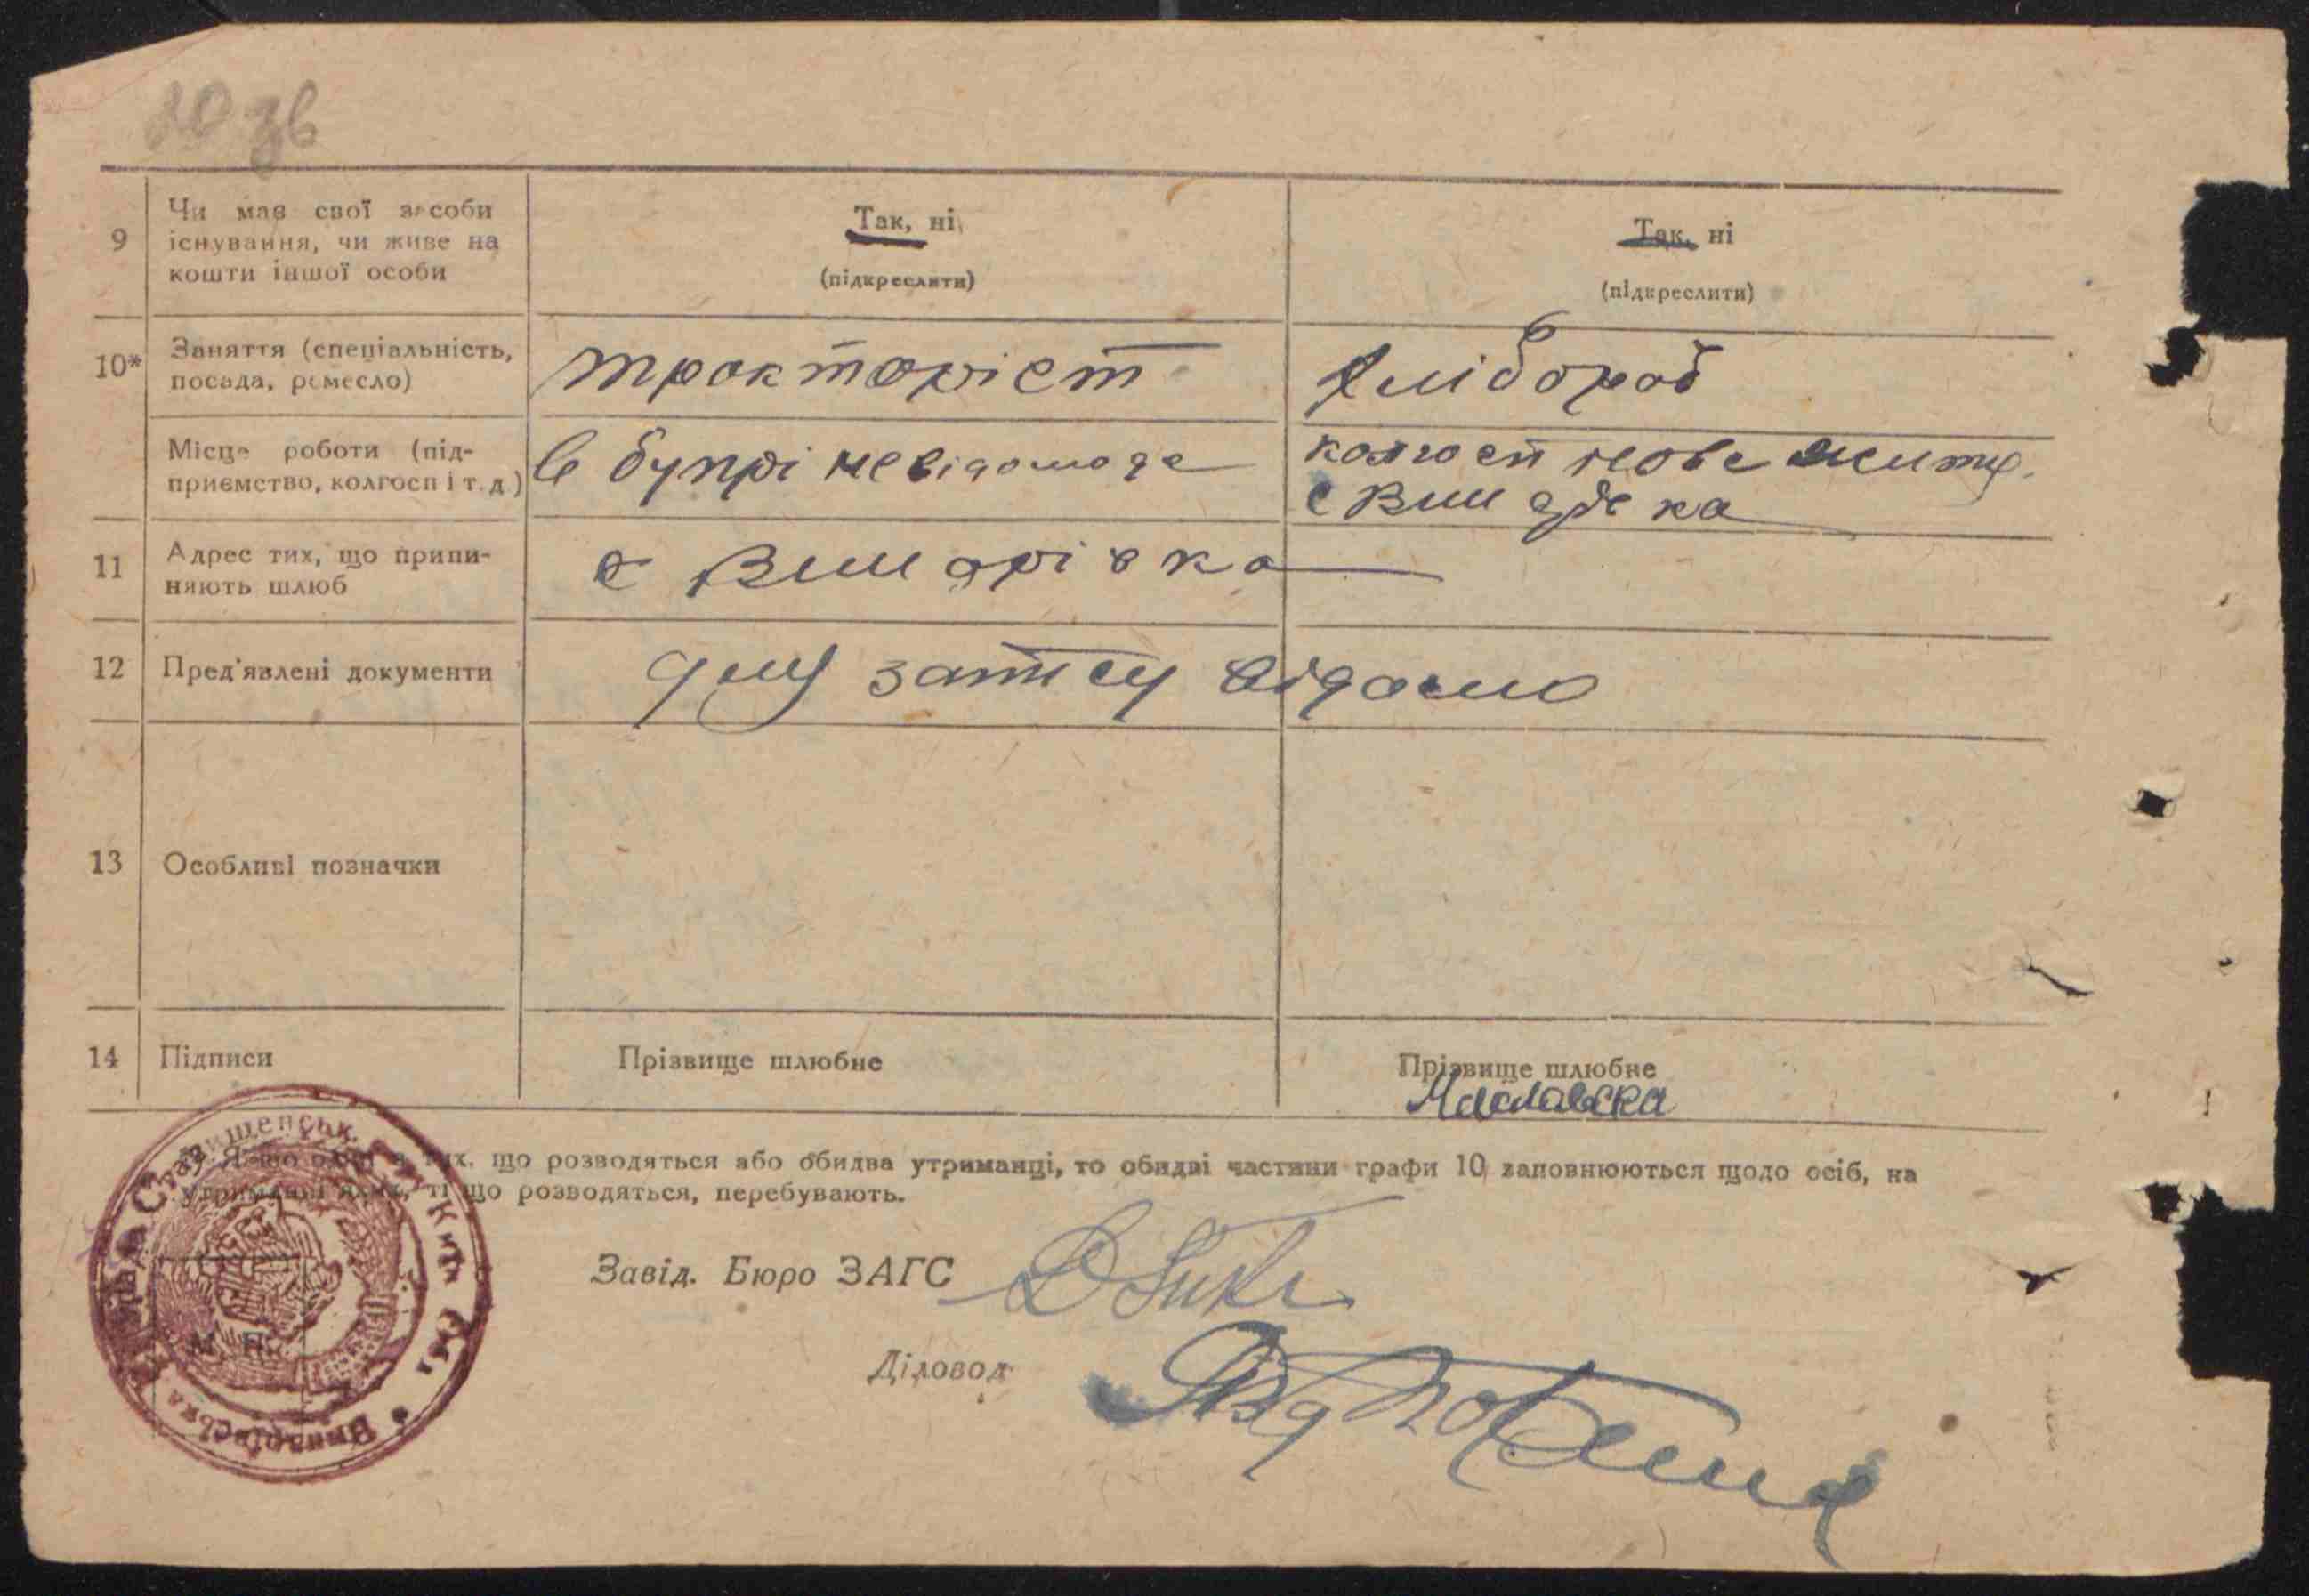 20 зв
9
Чи має свої засоби
існування, чи живе на
кошти іншої особи
Так, ні
(підкреслити)
Так, ні
(підкреслити)
10*
Заняття (спеціальність,
посада, ремесло)
тракторіст
хлібороб
Місце роботи (під-
приємство, колгосп і т. д.)
в бупрі невідомо де
колгосп нове життя
с Винарівка
11
Адрес тих, що припи-
няють шлюб
с Винарівка
12
Пред'явлені документи
для запису відомо
13
Особливі позначки
14
Підписи
Прізвище шлюбне
Прізвище шлюбне
Маславска
*) Якщо один з тих, що розводяться або обидва утриманці, то обидві частини графи 10 заповнюються щодо осіб, на
утриманні яких, ті що розводяться, перебувають.
Завід. Бюро ЗАГС
Діловод
М. П.
Ставищенськ. Київ Обл
Винарівська